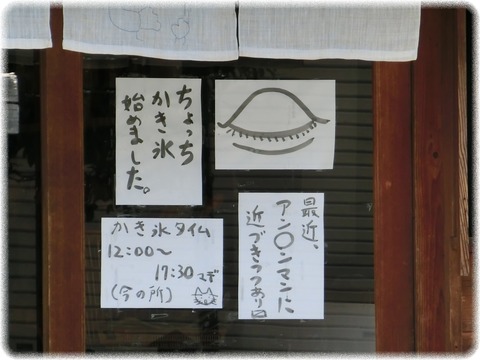 ちょっち
かき氷
始めました。
かき氷タイム
12:00〜
17:30マデ
(今の所)
最近、
アン〇ンマンに
近づきつつあり